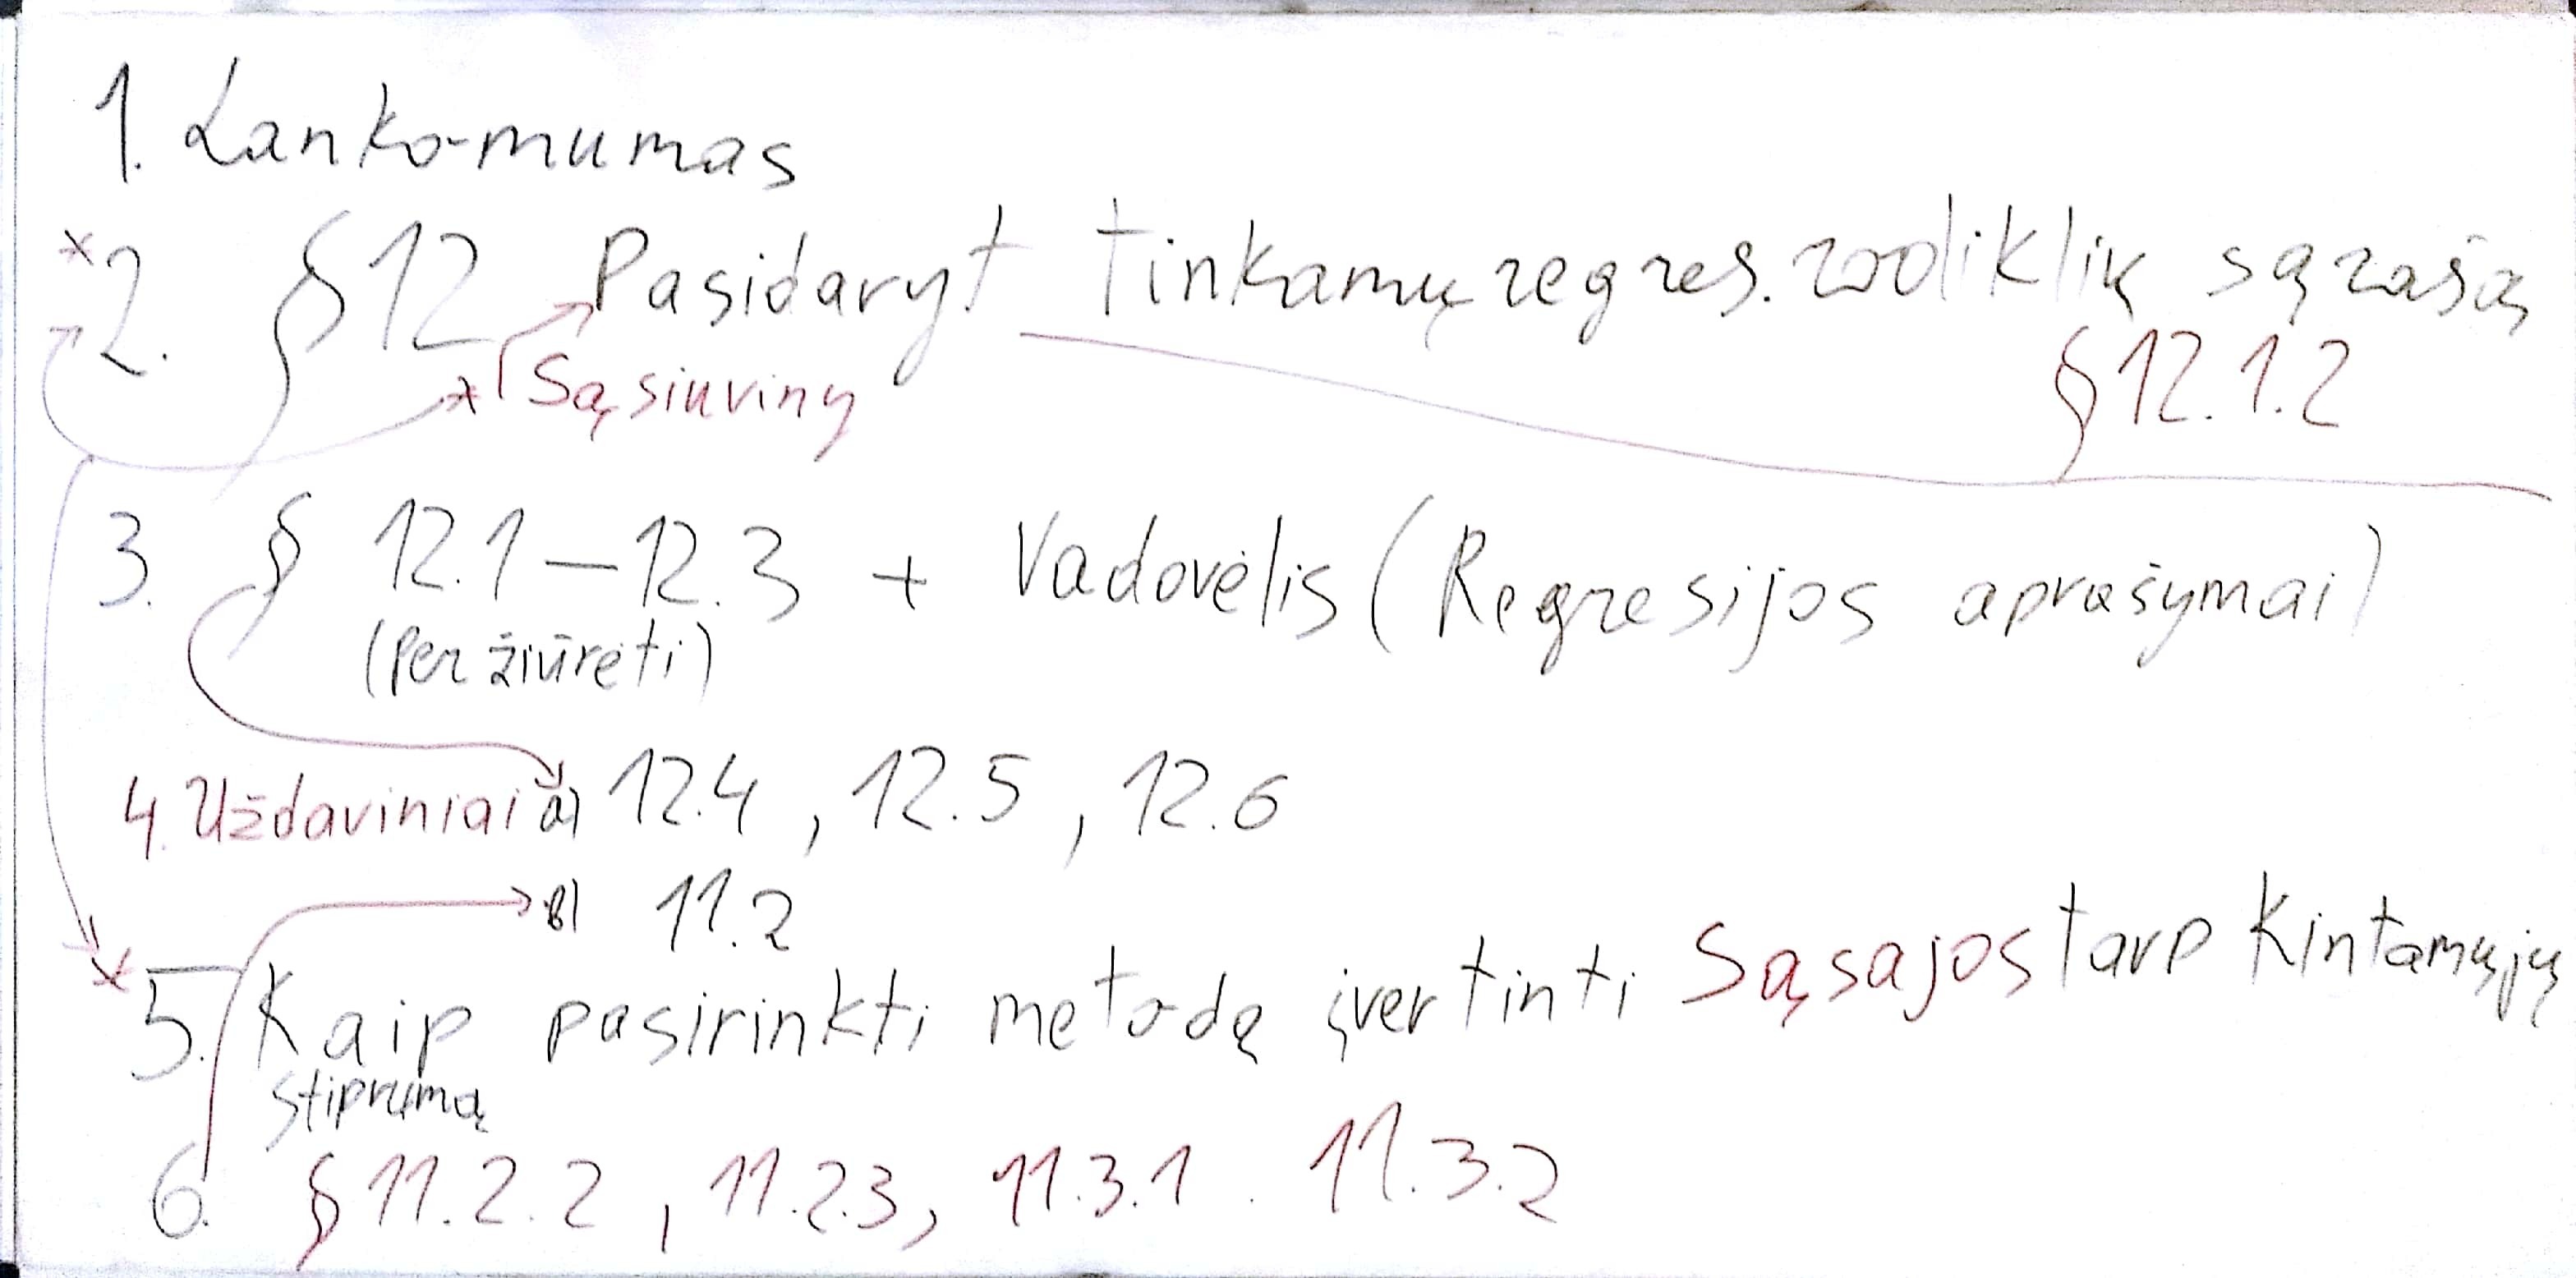 1. Lankomumas
*2. §12 Pasidaryt tinkamų regres. rodiklių sąrašą
* Sąsiuviny §12.1.2
3. § 12.1–12.3 + Vadovėlis (Regresijos aprašymai)
(Peržiūrėti)
4. Uždaviniai a) 12.4, 12.5, 12.6
B) 11.2
* 5. Kaip pasirinkti metodą įvertinti Sąsajos tarp Kintamųjų
stiprumą
6. § 11.2.2, 11.2.3, 11.3.1. 11.3.2